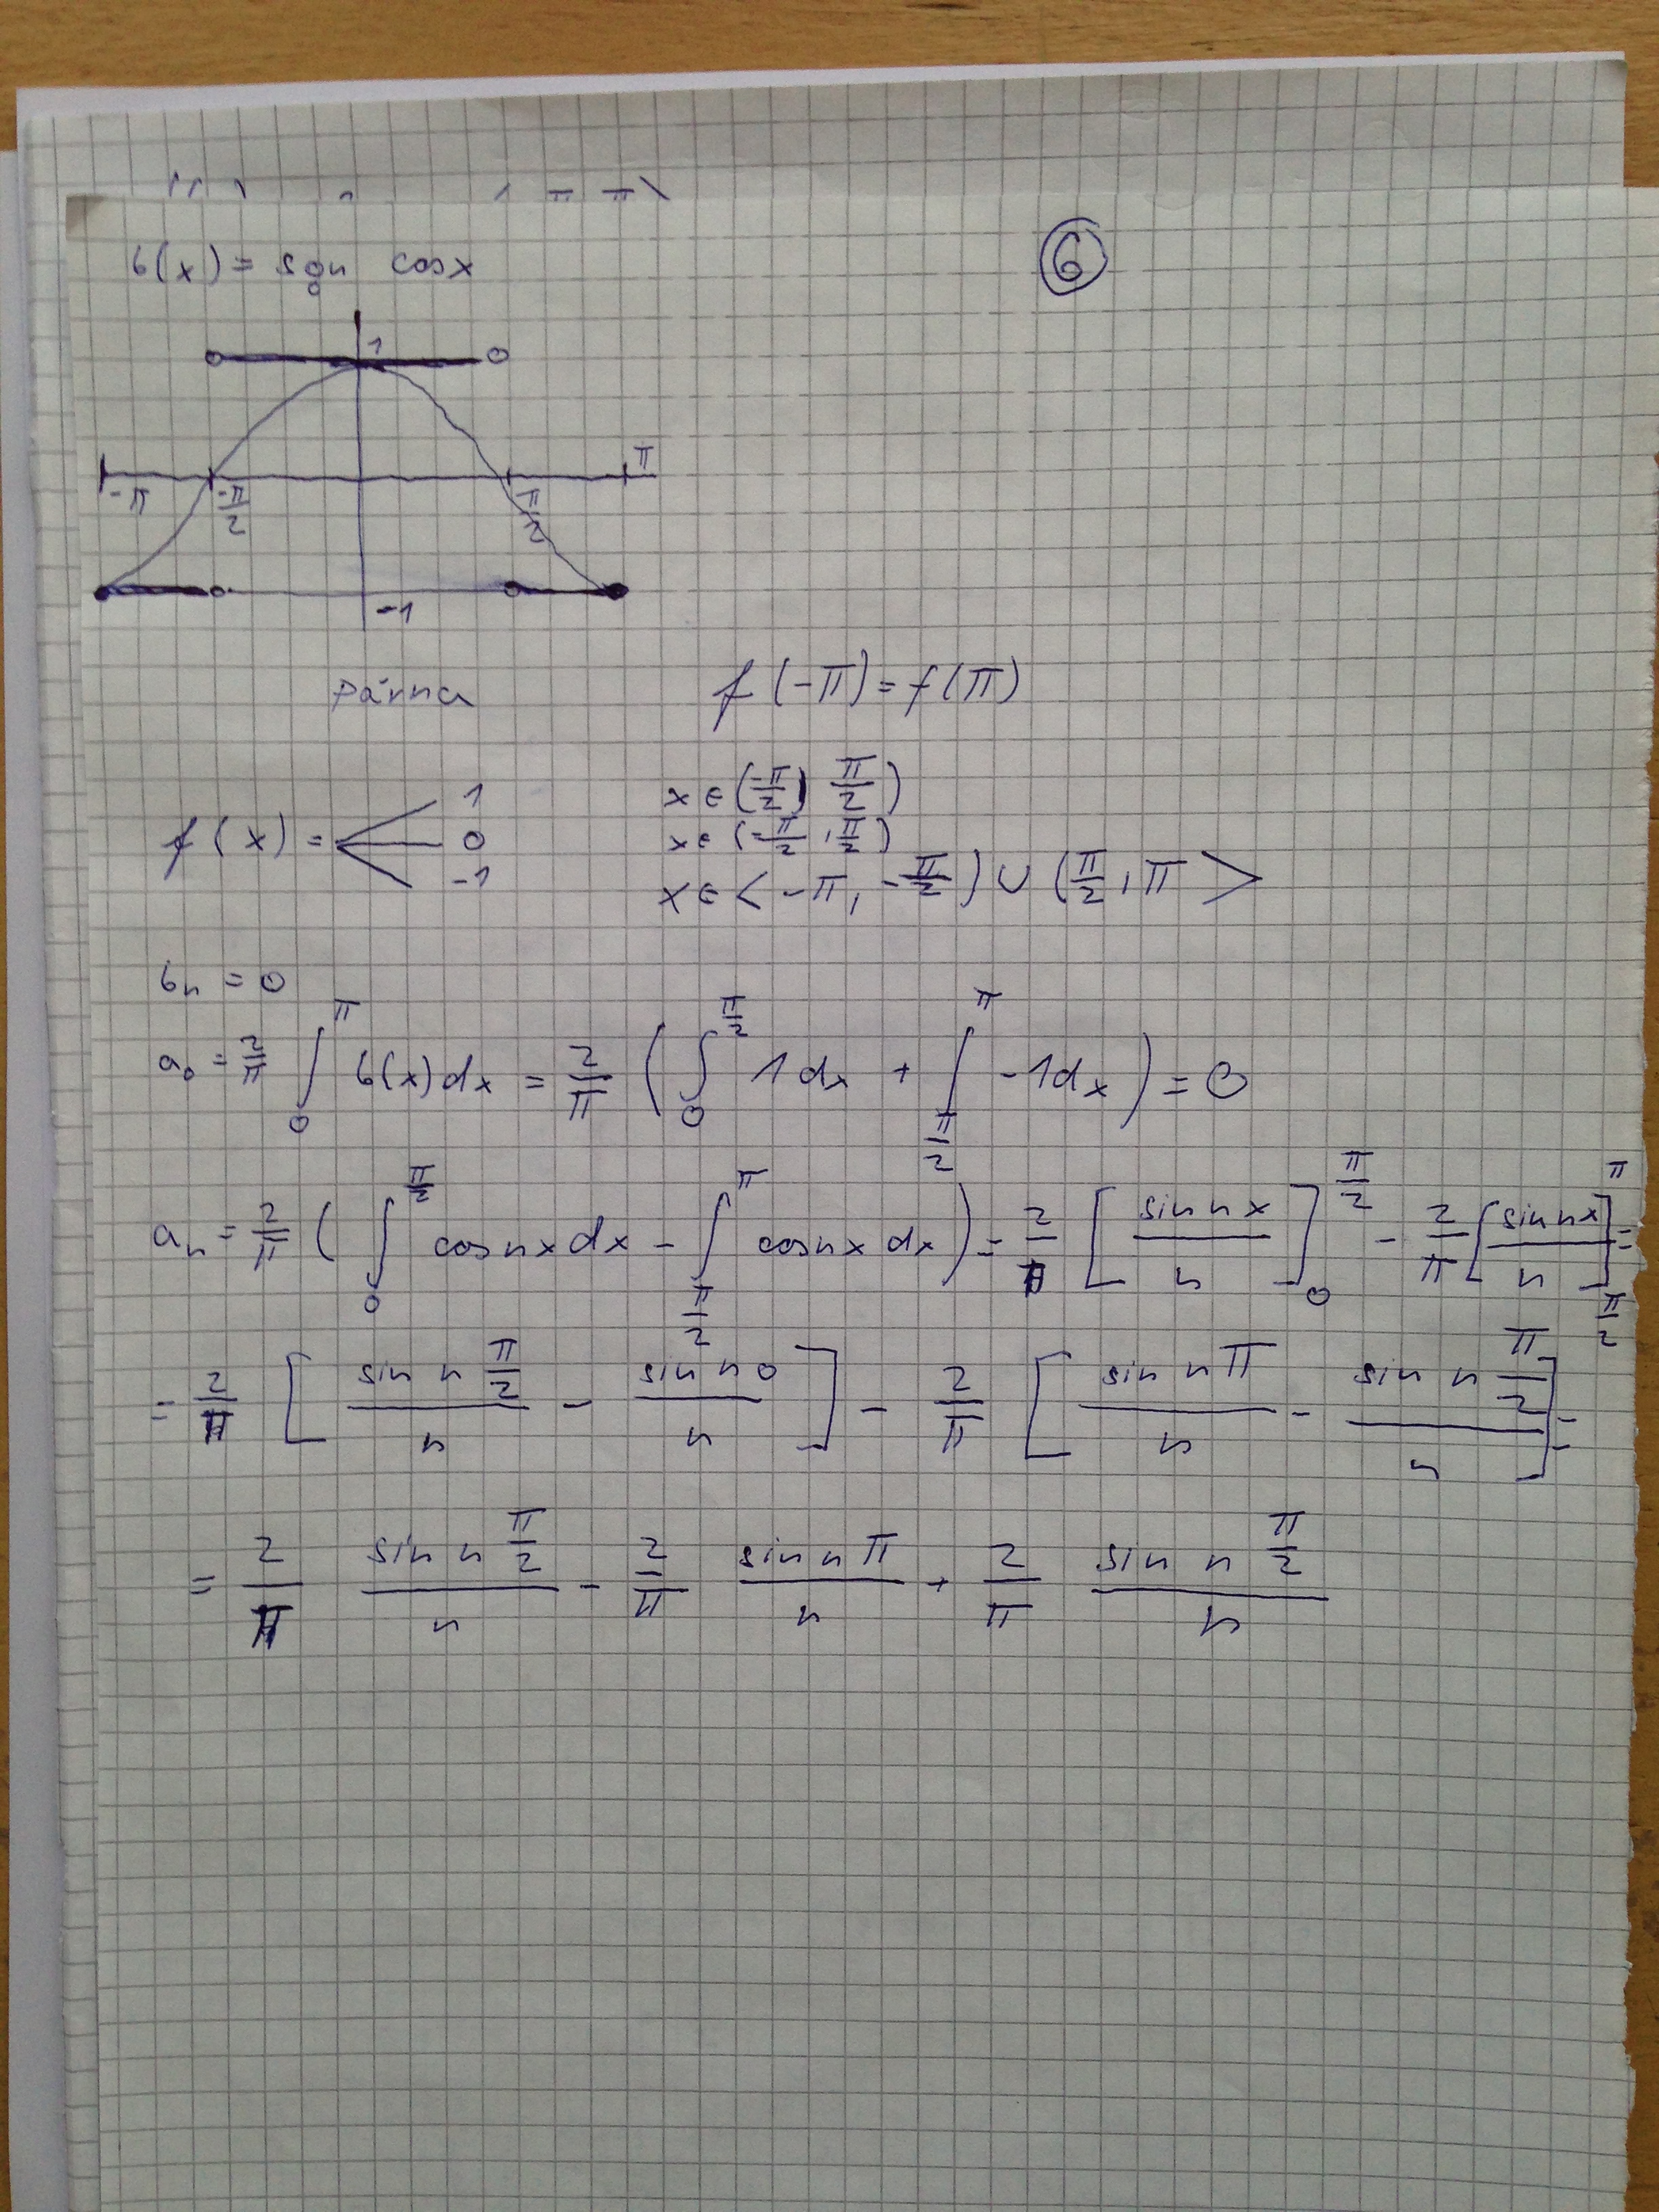 6(x) = sgn cosx
6
1
-π -π/2 π/2 π
-1
párna f(-π) = f(π)
f(x) = 1 x ∈ (-π/2) π/2)
0 x ∈ (-π/2, π/2)
-1 x ∈ < -π, -π/2) ∪ (π/2, π >
bn = 0
a0 = 2/π ∫_0^π 6(x)dx = 2/π ( ∫_0^{π/2} 1dx + ∫_{π/2}^π -1dx ) = 0
an = 2/π ( ∫_0^{π/2} cosnxdx - ∫_{π/2}^π cosnxdx ) = 2/π [ sinnx/n ]_0^{π/2} - 2/π [ sinnx/n ]_{π/2}^π =
= 2/π [ sin n π/2 / n - sin n0 / n ] - 2/π [ sin nπ / n - sin n π/2 / n ] =
= 2/π sin n π/2 / n - 2/π sin nπ / n + 2/π sin n π/2 / n